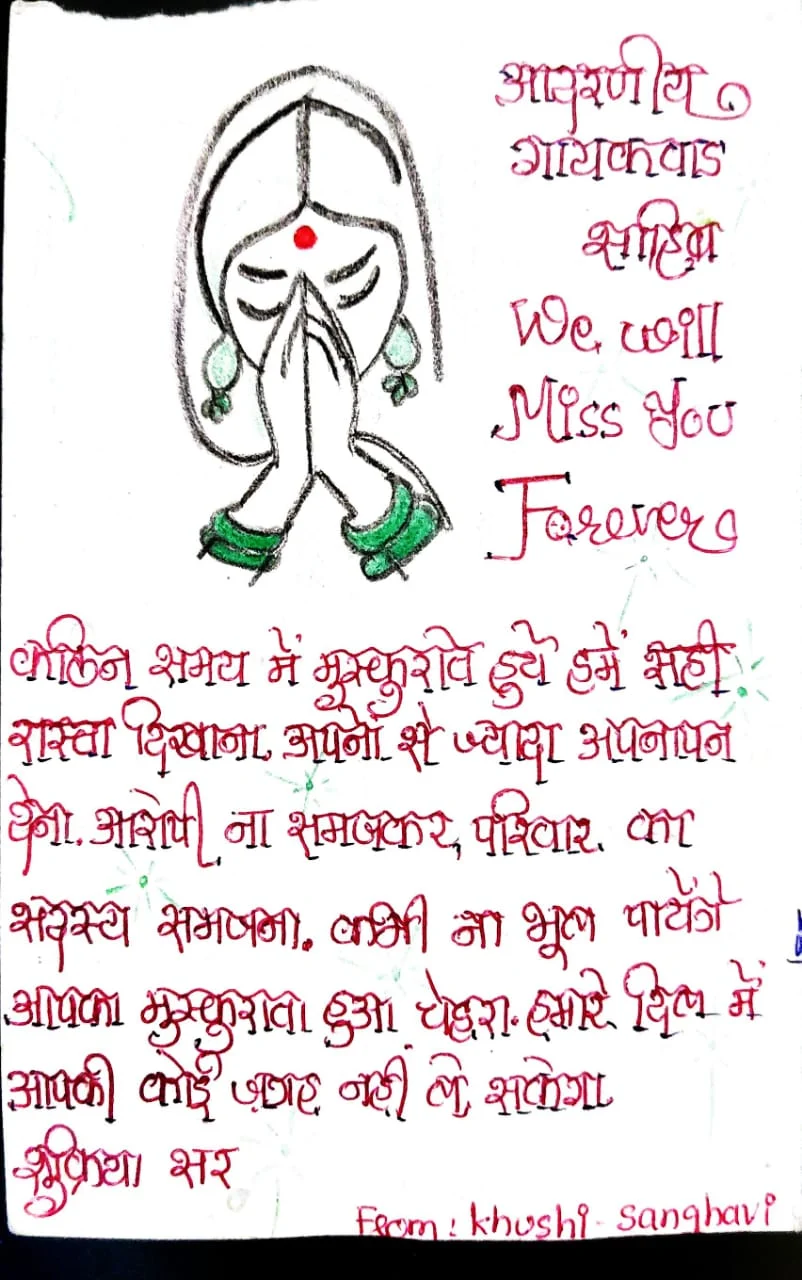 आदरणीय
गायकवाड
साहिब
We will
Miss You
Forever
कठिन समय में मुस्कुराते हुये हमें सही
रास्ता दिखाना. अपनो से ज्यादा अपनापन
देना. आरोपी ना समजकर, परिवार का
सदस्य समजना. कभी ना भूल पायेंगे
आपका मुस्कुराता हुआ चेहरा. हमारे दिल में
आपकी कोई जगह नहीं ले सकेगा
शुक्रिया सर
From : Khushi - Sanghavi